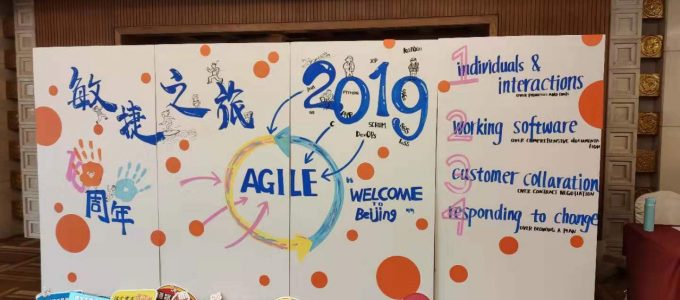 敏捷之旅
周年
2019
Kanban
XP
PYTHON
C
SCRUM
DevOps
AGILE
"WELCOME
TO
Beijing"
1 individuals &
interactions
OVER PROCESSES AND TOOLS
2 working software
OVER COMPREHENSIVE DOCUMENTATION
3 customer collaration
OVER CONTRACT NEGOTIATION
4 responding to change
OVER FOLLOWING A PLAN